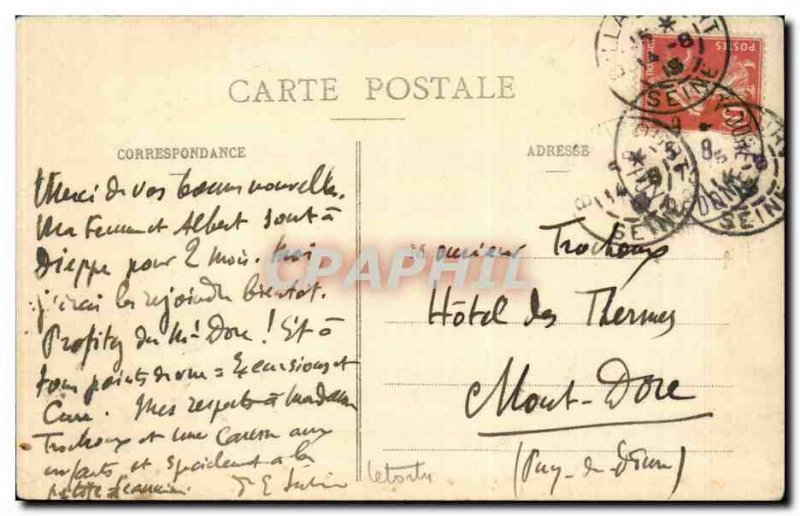 CARTE POSTALE
CORRESPONDANCE
ADRESSE
Merci de vos bonnes nouvelles.
Ma femme et Albert sont à
Dieppe pour 2 mois. Moi
j'irai les rejoindre bientôt.
Profitez du Mt Dore ! Et à
tous points de vue = Excursions et
Cure. Mes respects à Madame
Trochoux et une caresse aux
enfants et spécialement à la
petite
Monsieur Trochoux
Hôtel des Thermes
Mont-Dore
(Puy-de-Dôme)
POSTES
SEINE
SEINE
SEINE
CPAPHIL